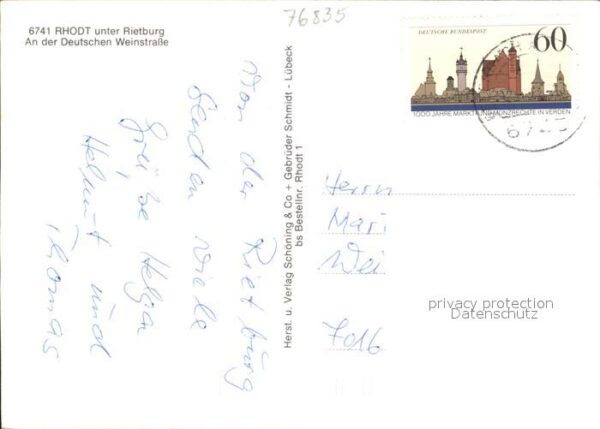 76835
6741 RHODT unter Rietburg
An der Deutschen Weinstraße
Von der Rietburg
senden viele
Grüße Helga
Helmut und
Thomas
Herst. u. Verlag Schöning & Co + Gebrüder Schmidt - Lübeck
bs Bestellnr. Rhodt 1
DEUTSCHE BUNDESPOST
60
1000 JAHRE MARKT- UND MÜNZRECHTE IN VERDEN
Herrn
Mari
Wei
7016
privacy protection
Datenschutz